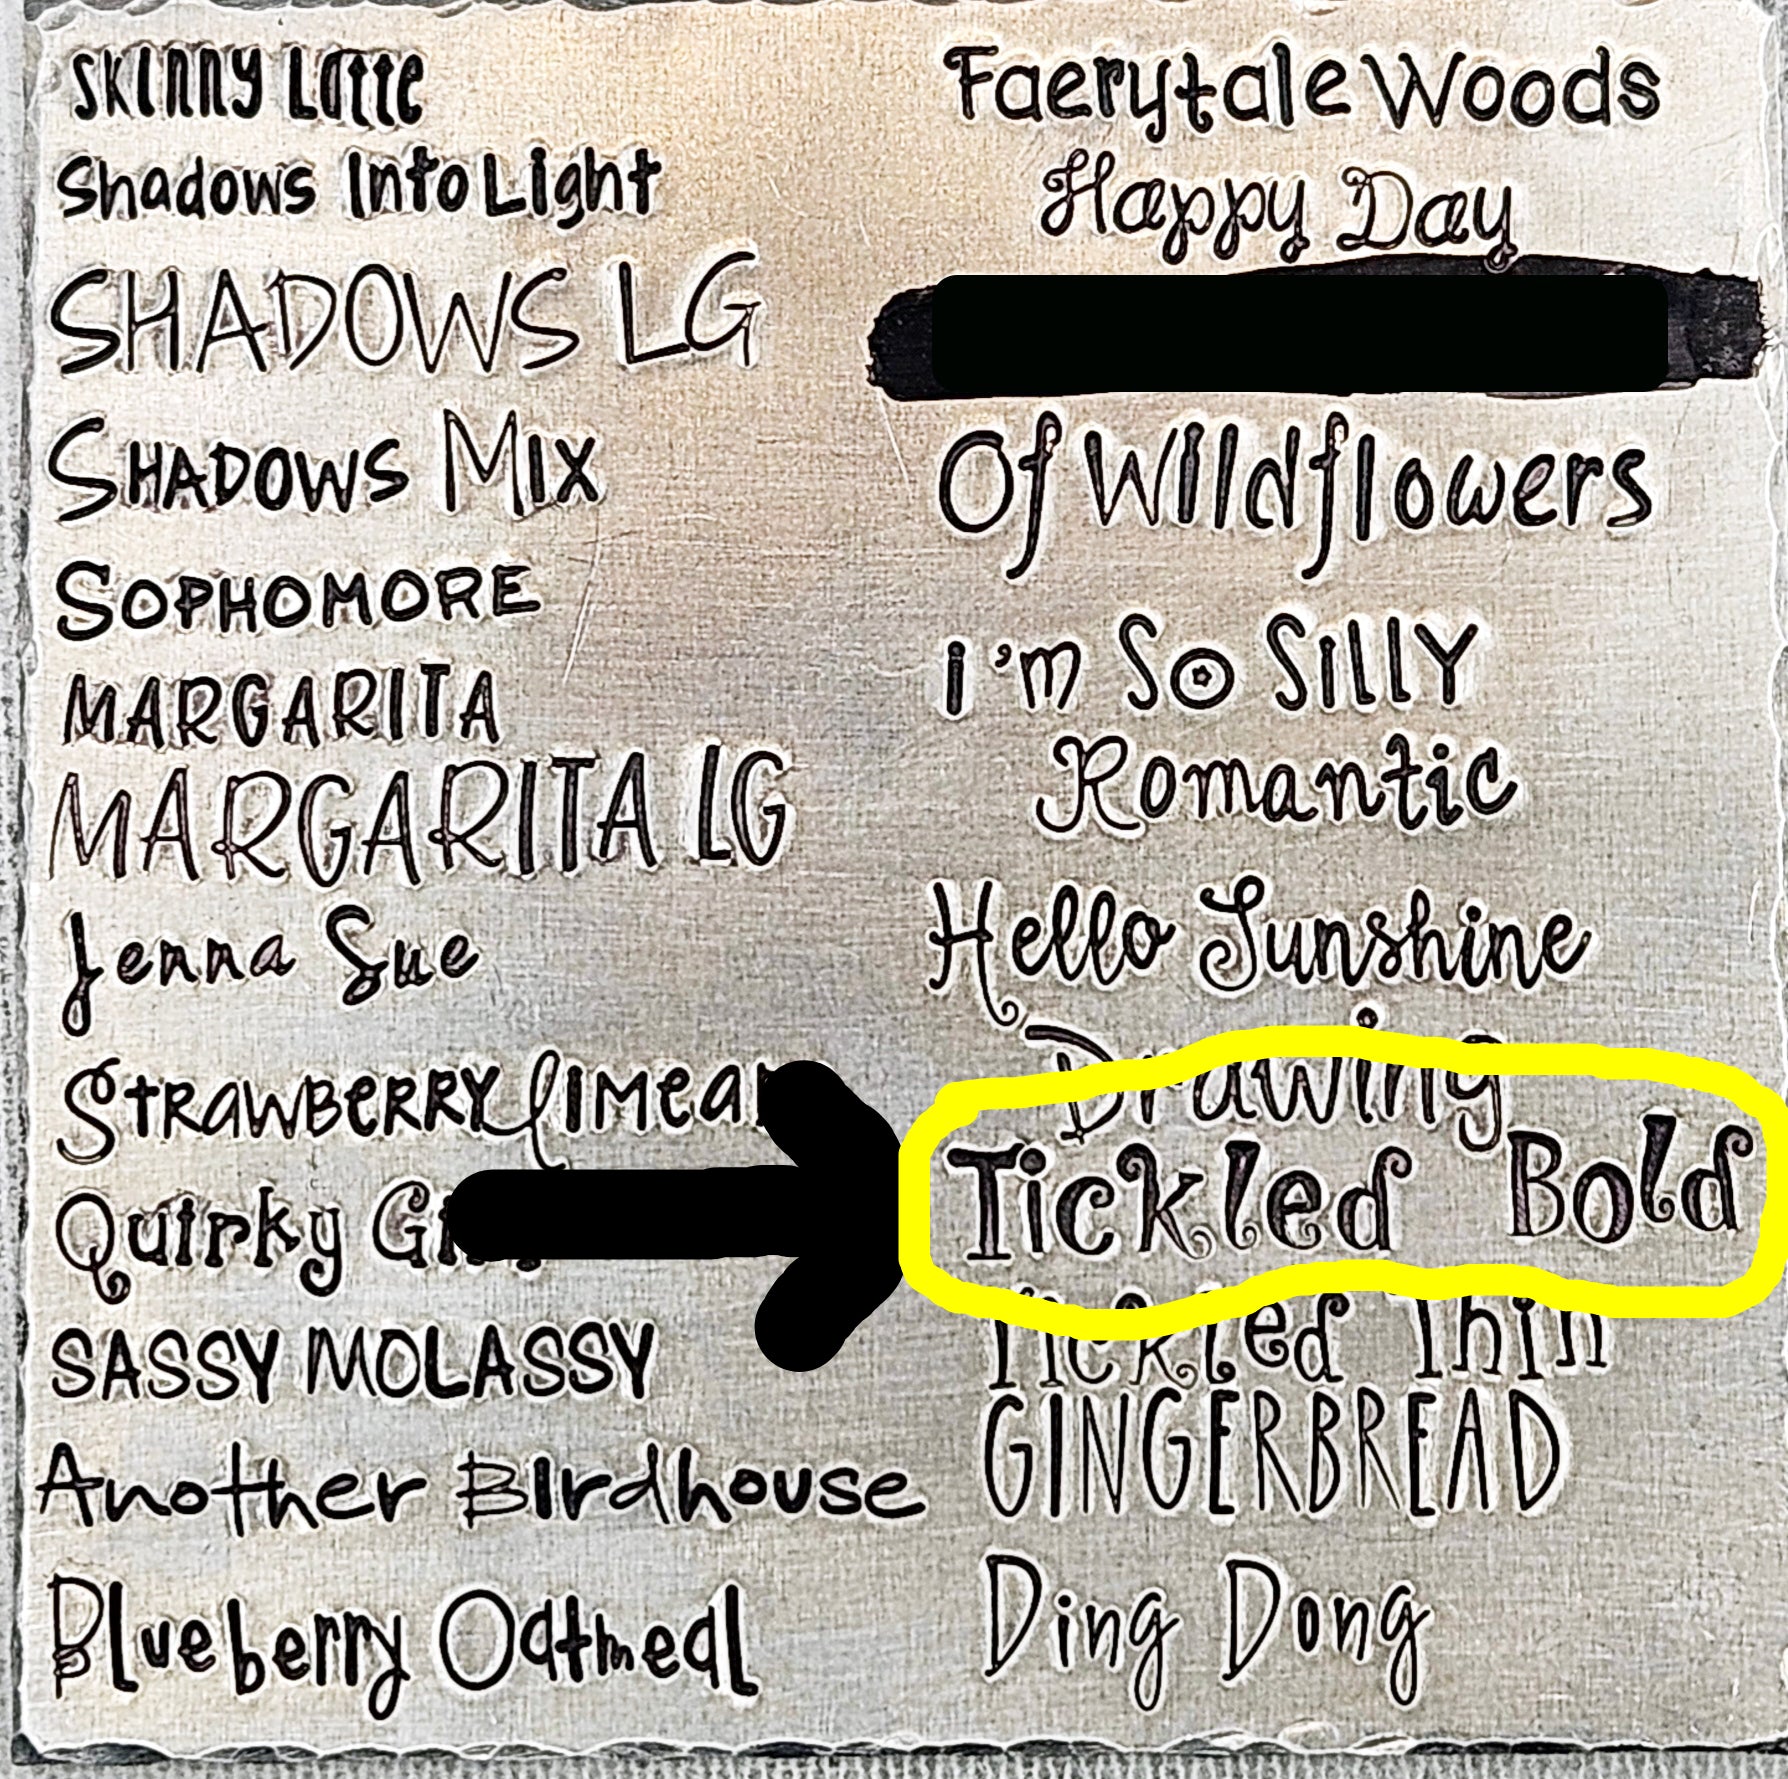 SKINNY Latte
Shadows Into Light
SHADOWS LG
SHADOWS MIX
SOPHOMORE
MARGARITA
MARGARITA LG
Jenna Sue
STRAWBERRY
Quirky
SASSY MOLASSY
Another Birdhouse
Blueberry Oatmeal
Faerytale Woods
Happy Day
Of Wildflowers
i'm So SiLLY
Romantic
Hello Sunshine
Drawing
Tickled Bold
Tickled Thin
GINGERBREAD
Ding Dong